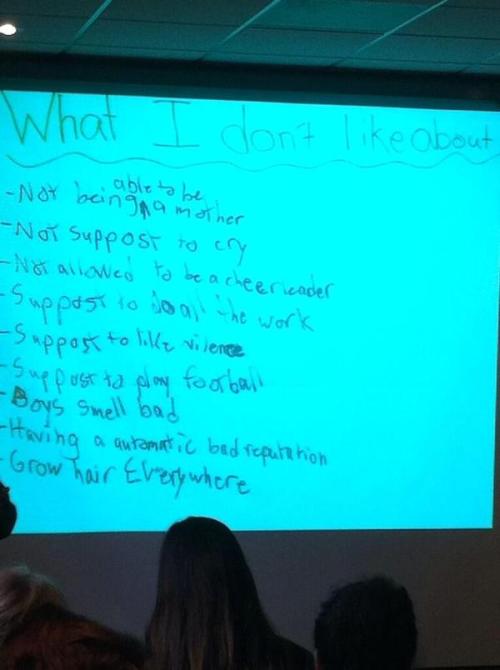 What I don't like about
-Not being able to be a mother
-Not suppost to cry
-Not allowed to be a cheerleader
-Suppost to do all the work
-Suppost to like vilence
-Suppost to play football
-Boys smell bad
-Having a automatic bad reputation
-Grow hair Everywhere